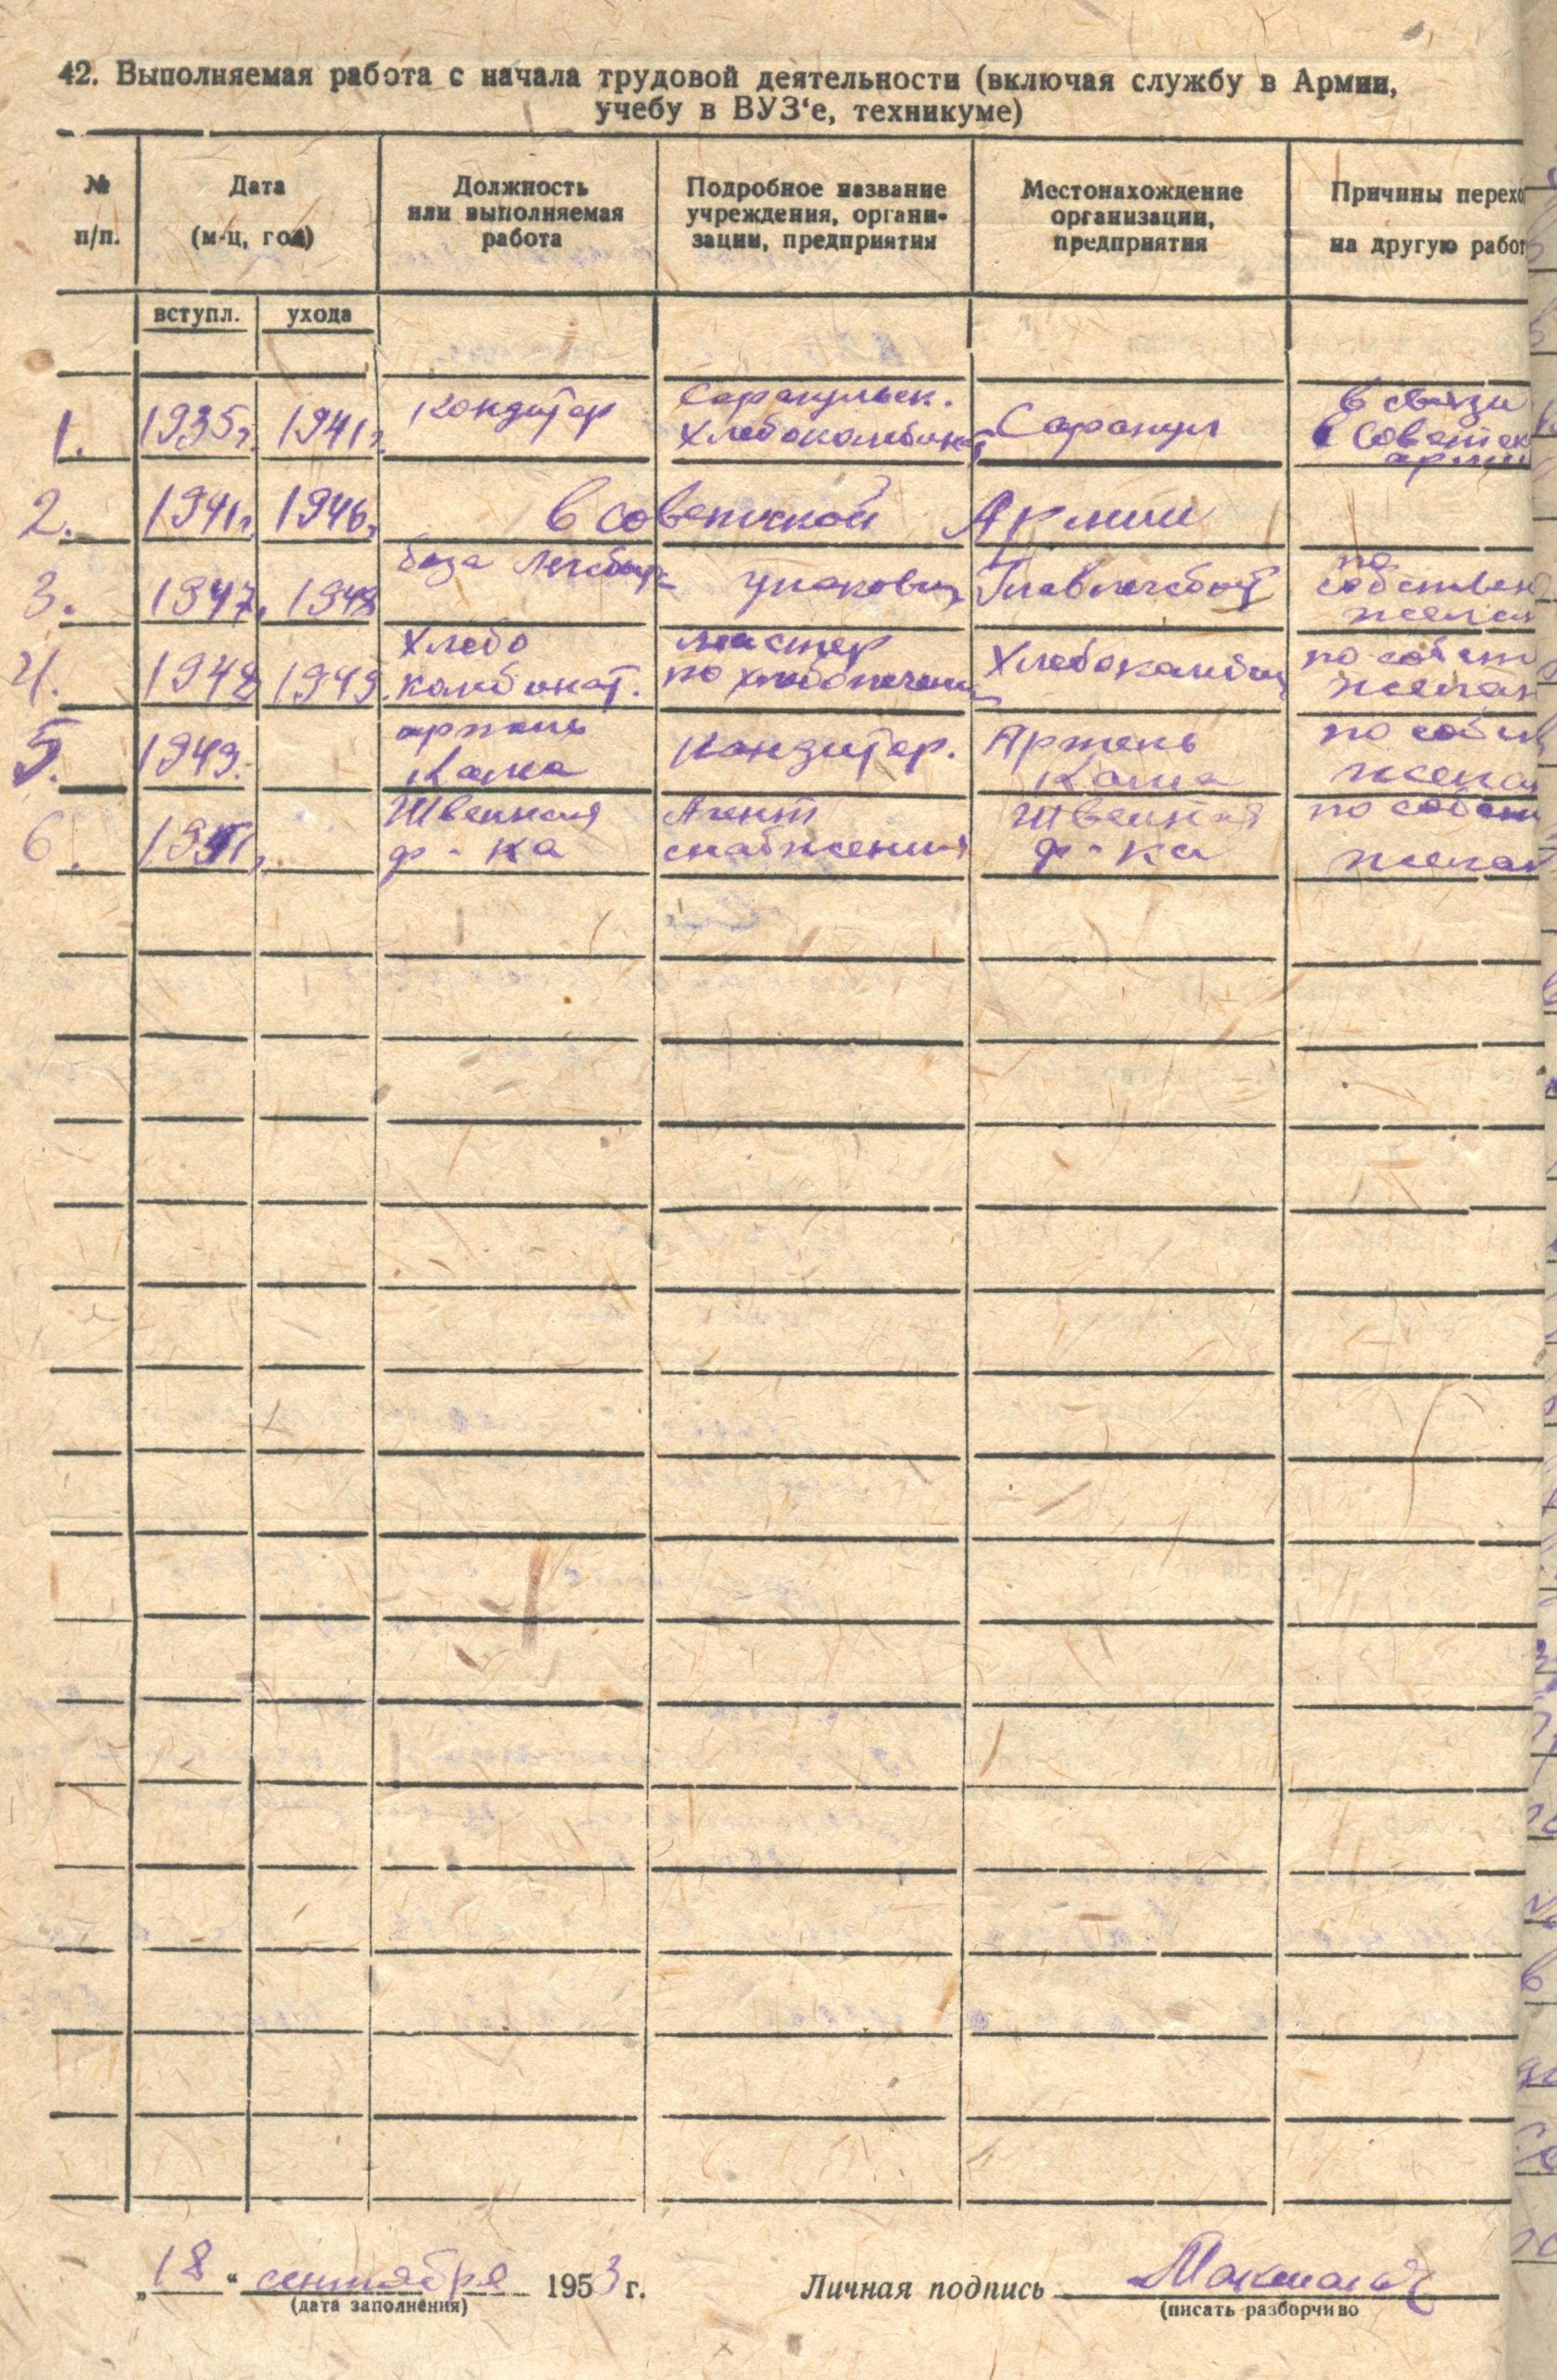 42. Выполняемая работа с начала трудовой деятельности (включая службу в Армии,
учебу в ВУЗ‘е, техникуме)
№ п/п.
Дата (м-ц, год)
Должность или выполняемая работа
Подробное название учреждения, органи-зации, предприятия
Местонахождение организации, предприятия
Причины перехо
на другую работ
вступл. ухода
1. 1935г. 1941г. Кондитор Сарапульск. Хлебокомбинат Сарапул в связи в Советск арми
2. 1941г. 1946г. в советской Армии
3. 1947. 1948 база упаковщ по собствен желан
4. 1948 1949. Хлебо комбинат. мастер по хлебопечени Хлебокомбин по собст желан
5. 1949. артель Кама Кондитор. Артель Кама по собств желан
6. 1951г. Швейная ф-ка Агент снабжения Швейная ф-ка по собст желан
„18“ сентября 1953 г.
(дата заполнения)
Личная подпись
(писать разборчиво